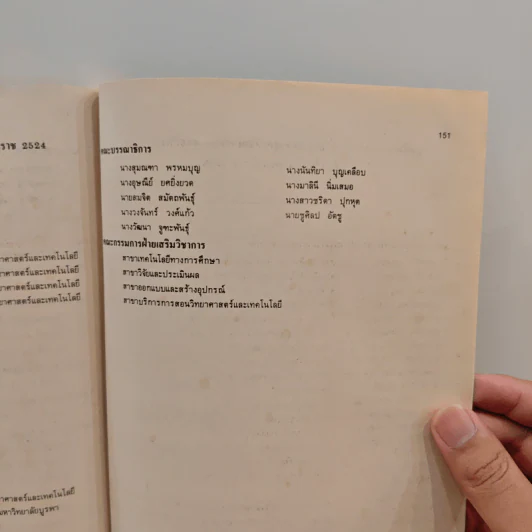 ราช 2524
าศาสตร์และเทคโนโลยี
าศาสตร์และเทคโนโลยี
าศาสตร์และเทคโนโลยี
าศาสตร์และเทคโนโลยี
าศาสตร์และเทคโนโลยี
มหาวิทยาลัยบูรพา
151
คณะบรรณาธิการ
นางสุมณฑา พรหมบุญ
นางอุษณีย์ ยศยิ่งยวด
นายสมจิต สมัตถพันธุ์
นางวงจันทร์ วงศ์แก้ว
นางวัฒนา จูฑะพันธุ์
นางนันทิยา บุญเคลือบ
นางมาลินี นิ่มเสมอ
นางสาวชริดา ปุกหุต
นายชูศิลป อัตชู
คณะกรรมการฝ่ายเสริมวิชาการ
สาขาเทคโนโลยีทางการศึกษา
สาขาวิจัยและประเมินผล
สาขาออกแบบและสร้างอุปกรณ์
สาขาบริการการสอนวิทยาศาสตร์และเทคโนโลยี